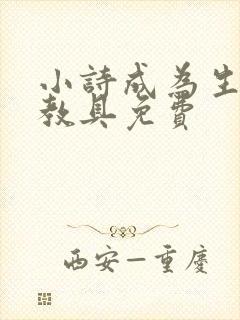 小詩成為生
教具免費
西安—重慶